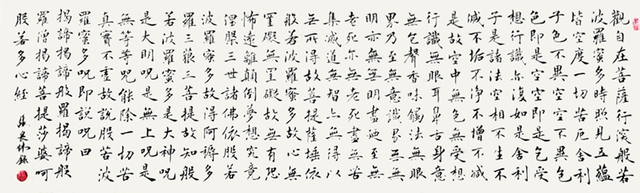 觀自在菩薩行深般若
波羅蜜多時照見五蘊
皆空度一切苦厄舍利
子色不異空空不異色
色即是空空即是色受
想行識亦復如是舍利
子是諸法空相不生不
滅不垢不淨不增不減
是故空中無色無受想
行識無眼耳鼻舌身意
無色聲香味觸法無眼
界乃至無意識界無無
明亦無無明盡乃至無
老死亦無老死盡無苦
集滅道無智亦無得以
無所得故菩提薩埵依
般若波羅蜜多故心無
罣礙無罣礙故無有恐
怖遠離顛倒夢想究竟
涅槃三世諸佛依般若
波羅蜜多故得阿耨多
羅三藐三菩提故知般
若波羅蜜多是大神呪
是大明呪是無上呪是
無等等呪能除一切苦
真實不虛故說般若波
羅蜜多呪即說呪曰
揭諦揭諦般羅揭諦般
羅僧揭諦菩提莎婆呵
般若多心經